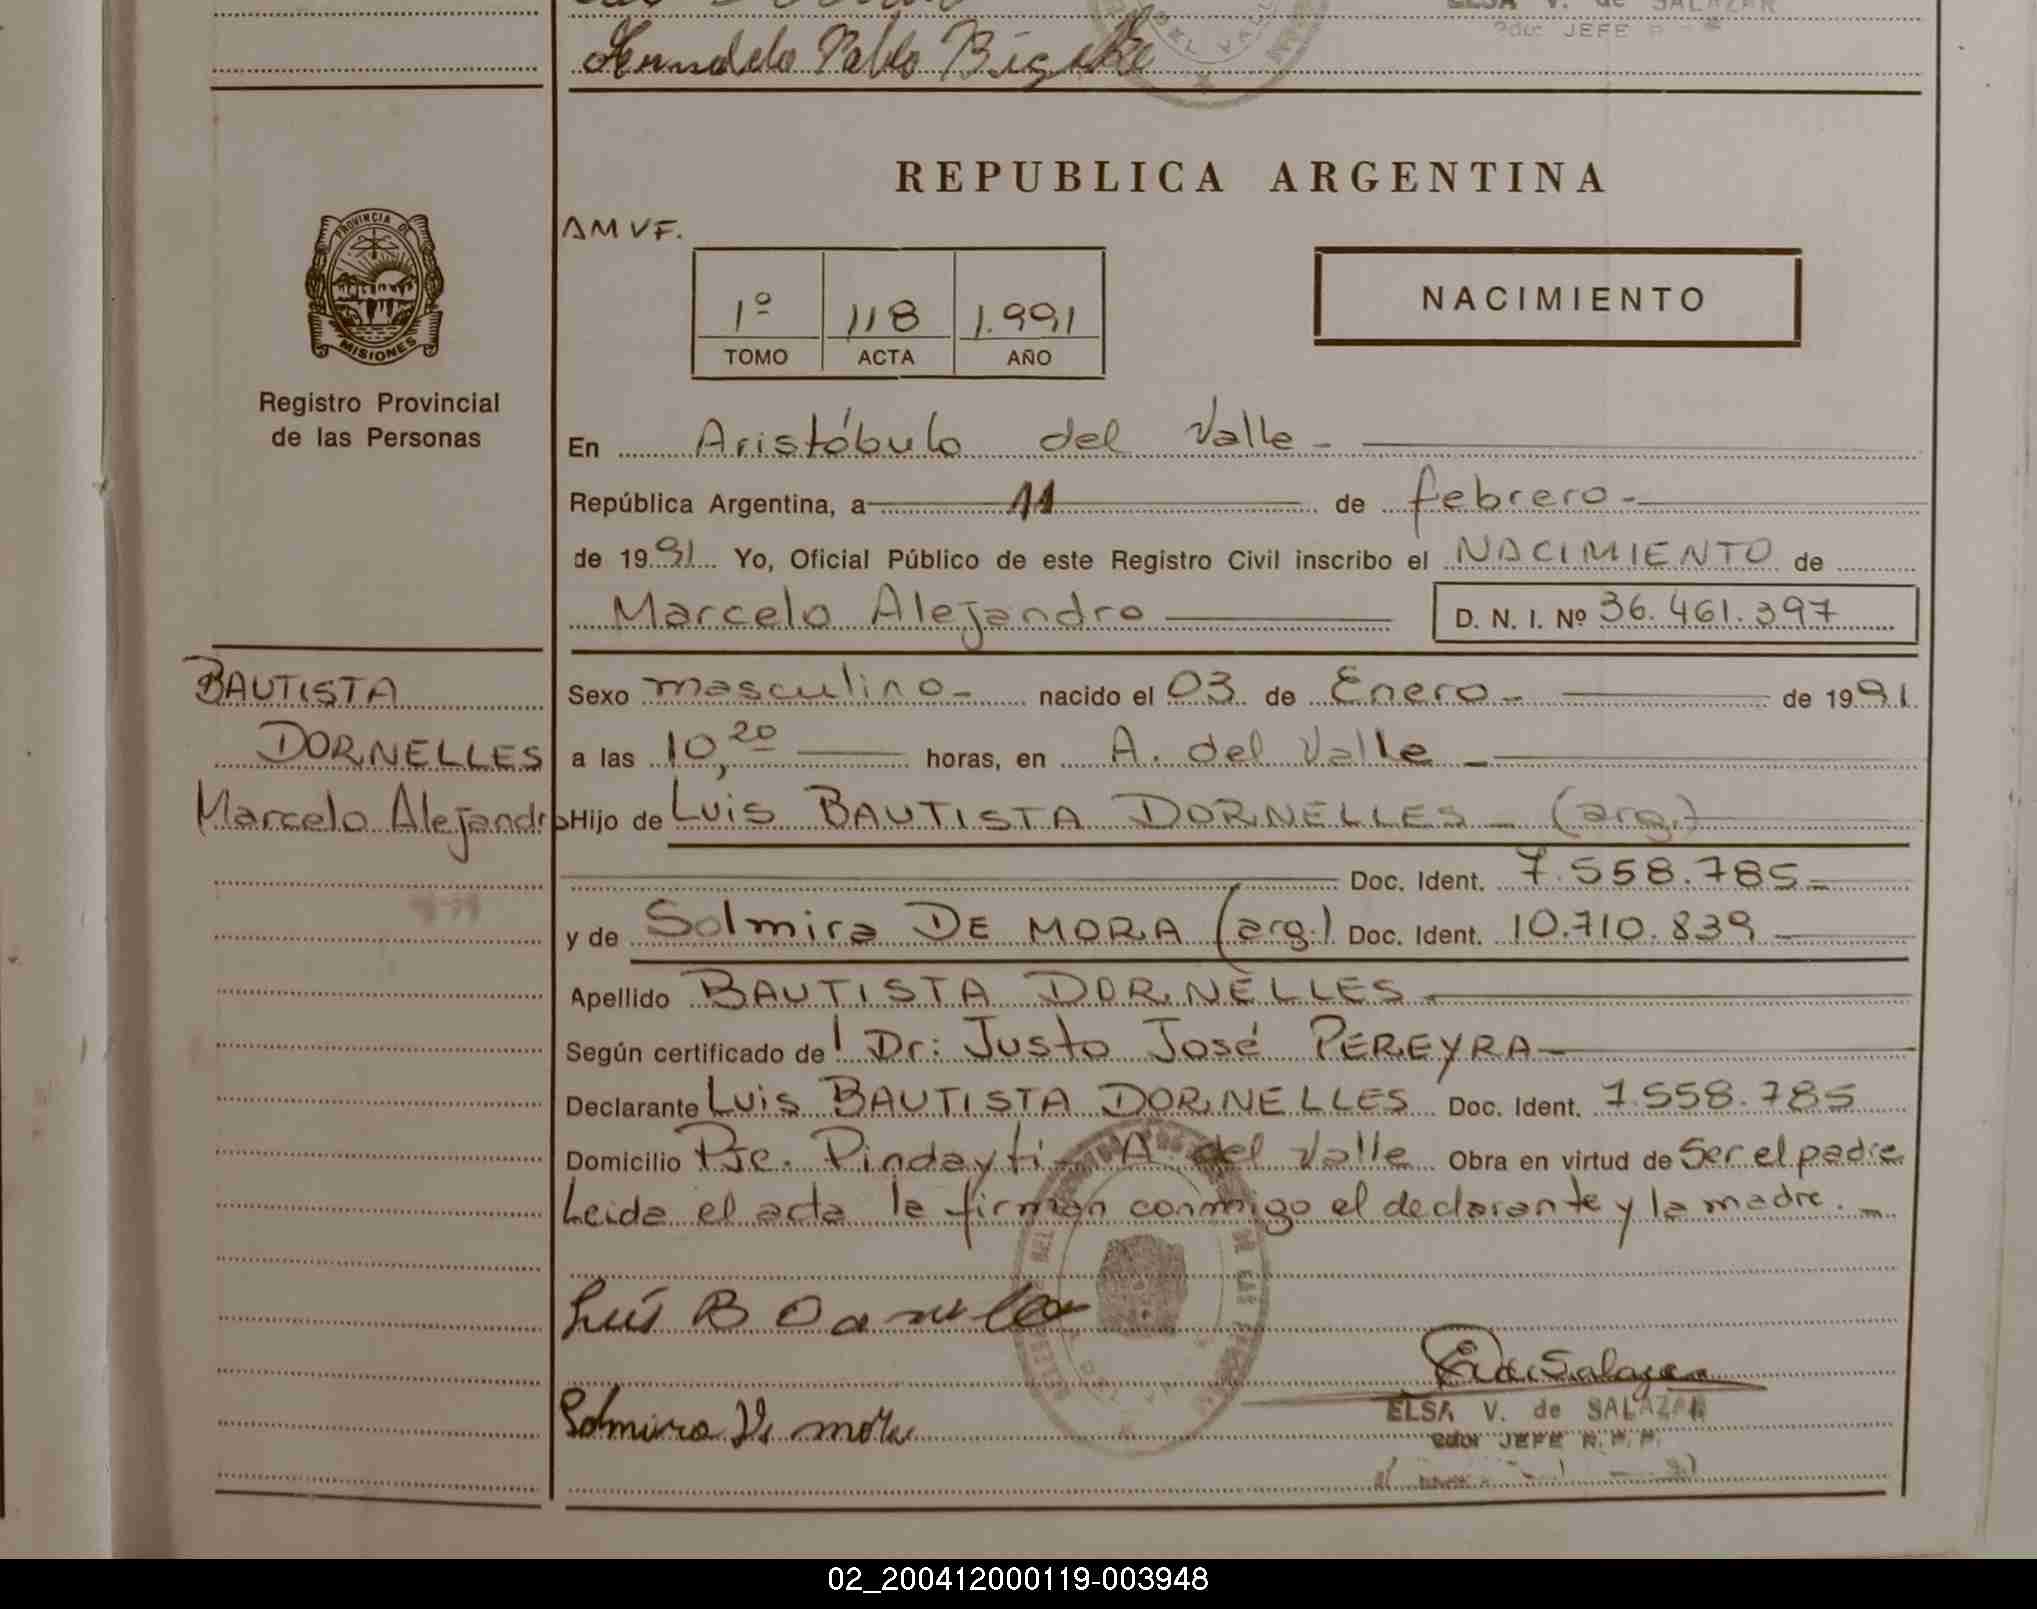 ELSA V. de SALAZAR
JEFE
Pablo
REPUBLICA ARGENTINA
AMVF.
1º 118 1.991
TOMO ACTA AÑO
NACIMIENTO
PROVINCIA DE
MISIONES
Registro Provincial
de las Personas
En Aristóbulo del Valle -
República Argentina, a 11 de febrero.-
de 1991 Yo, Oficial Público de este Registro Civil inscribo el NACIMIENTO de
Marcelo Alejandro D. N. I. Nº 36.461.397
BAUTISTA
DORNELLES
Marcelo Alejandro
Sexo masculino- nacido el 03 de Enero- de 1991.
a las 10,20 horas, en A. del Valle -
Hijo de Luis BAUTISTA DORNELLES - (arg.)
Doc. Ident. 7.558.785-
y de Solmira DE MORA (arg.) Doc. Ident. 10.710.839
Apellido BAUTISTA DORNELLES
Según certificado del Dr: Justo José PEREYRA
Declarante Luis BAUTISTA DORNELLES Doc. Ident. 7.558.785
Domicilio Pje. Pindayti- A del Valle Obra en virtud de Ser el padre
Leida el acta la firman conmigo el declarante y la madre.-
Luis B
Solmira De mora
ELSA V. de SALAZAR
JEFE R.P.P.
02_200412000119-003948